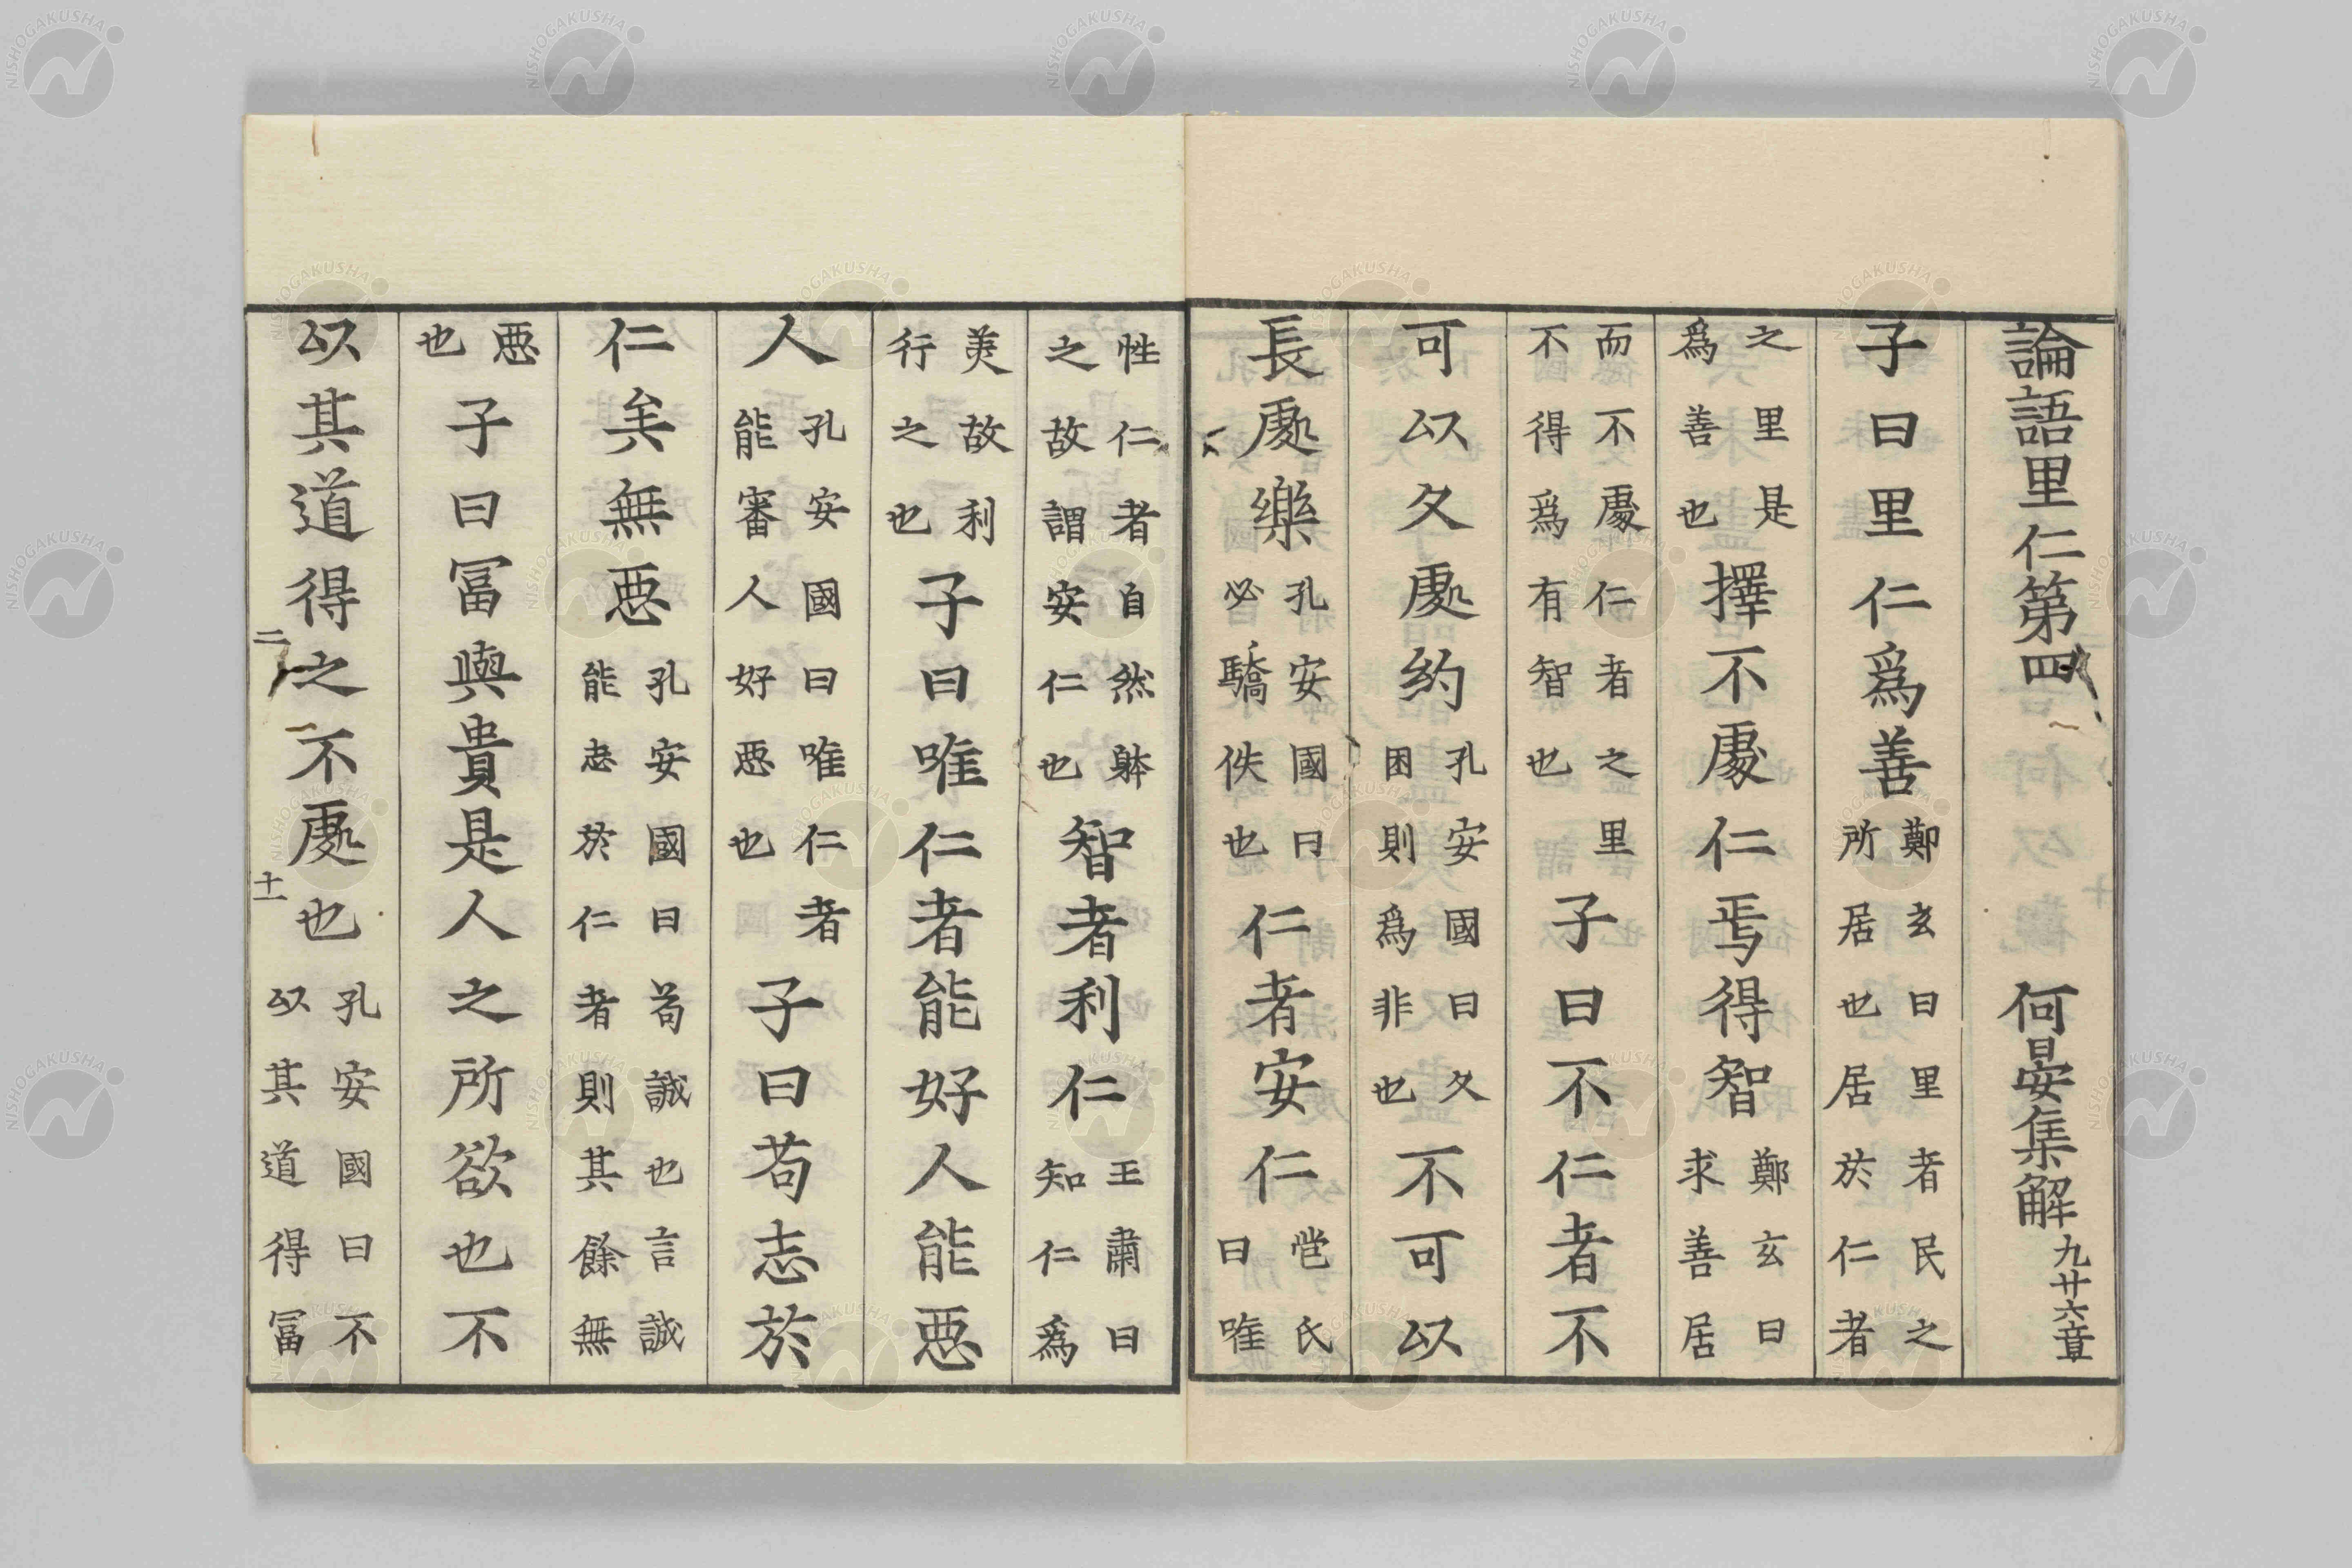 論語里仁第四 何晏集解 九廿六章
子曰里仁爲善 鄭玄曰里者民之所居也居於仁者
之里是爲善也 擇不處仁焉得智 鄭玄曰求善居
而不處仁者之里不得爲有智也 子曰不仁者不
可以久處約 孔安國曰久困則爲非也 不可以
長處樂 孔安國曰必驕佚也 仁者安仁 苞氏曰唯
性仁者自然躰之故謂安仁也 智者利仁 王肅曰知仁爲
美故利行之也 子曰唯仁者能好人能惡
人 孔安國曰唯仁者能審人好惡也 子曰苟志於
仁矣無惡 孔安國曰苟誠也言誠能志於仁者則其餘無
惡也 子曰冨與貴是人之所欲也不
以其道得之不處也 孔安國曰不以其道得冨
二
十一
NISHOGAKUSHA